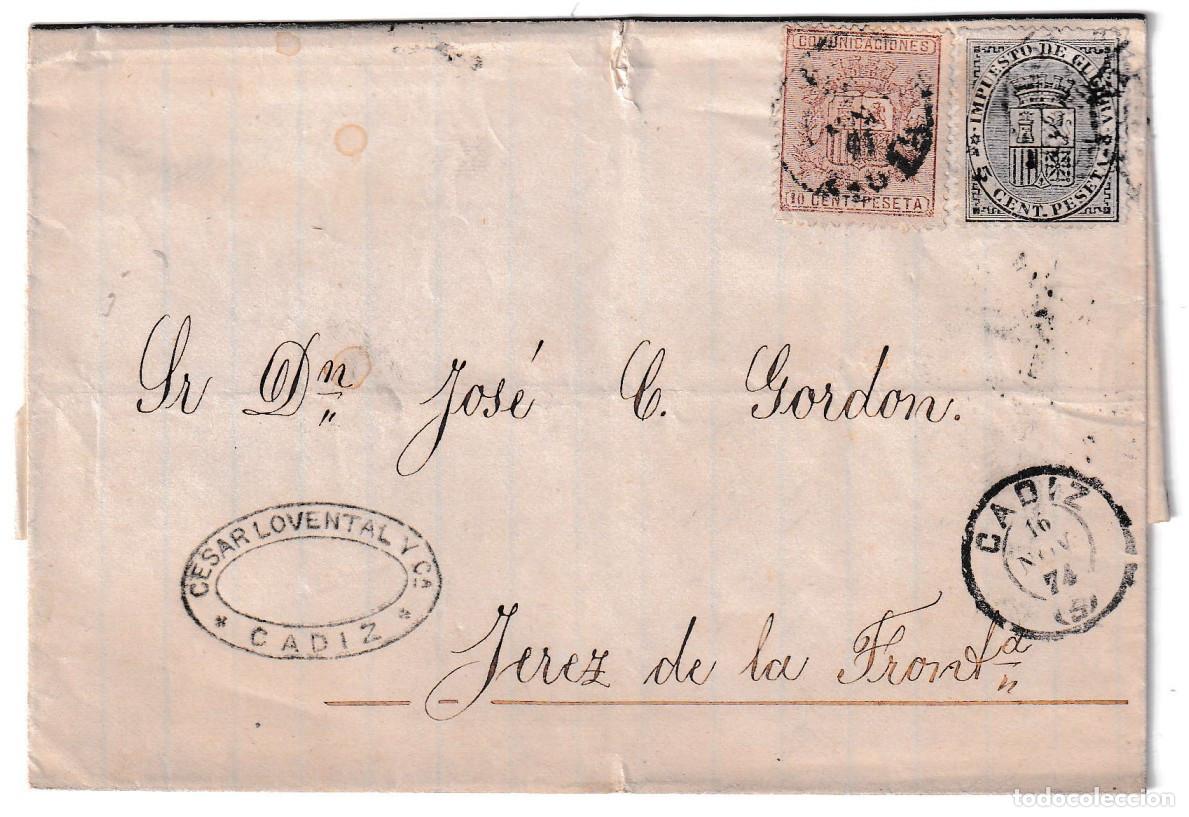 COMUNICACIONES
10 CENT. PESETA
IMPUESTO DE GUERRA
5 CENT. PESETA
Sr Dn José C. Gordon.
CESAR LOVENTAL Y Ca
* CADIZ *
CADIZ
16
NOV
74
(5)
Jerez de la Fronta
todocoleccion